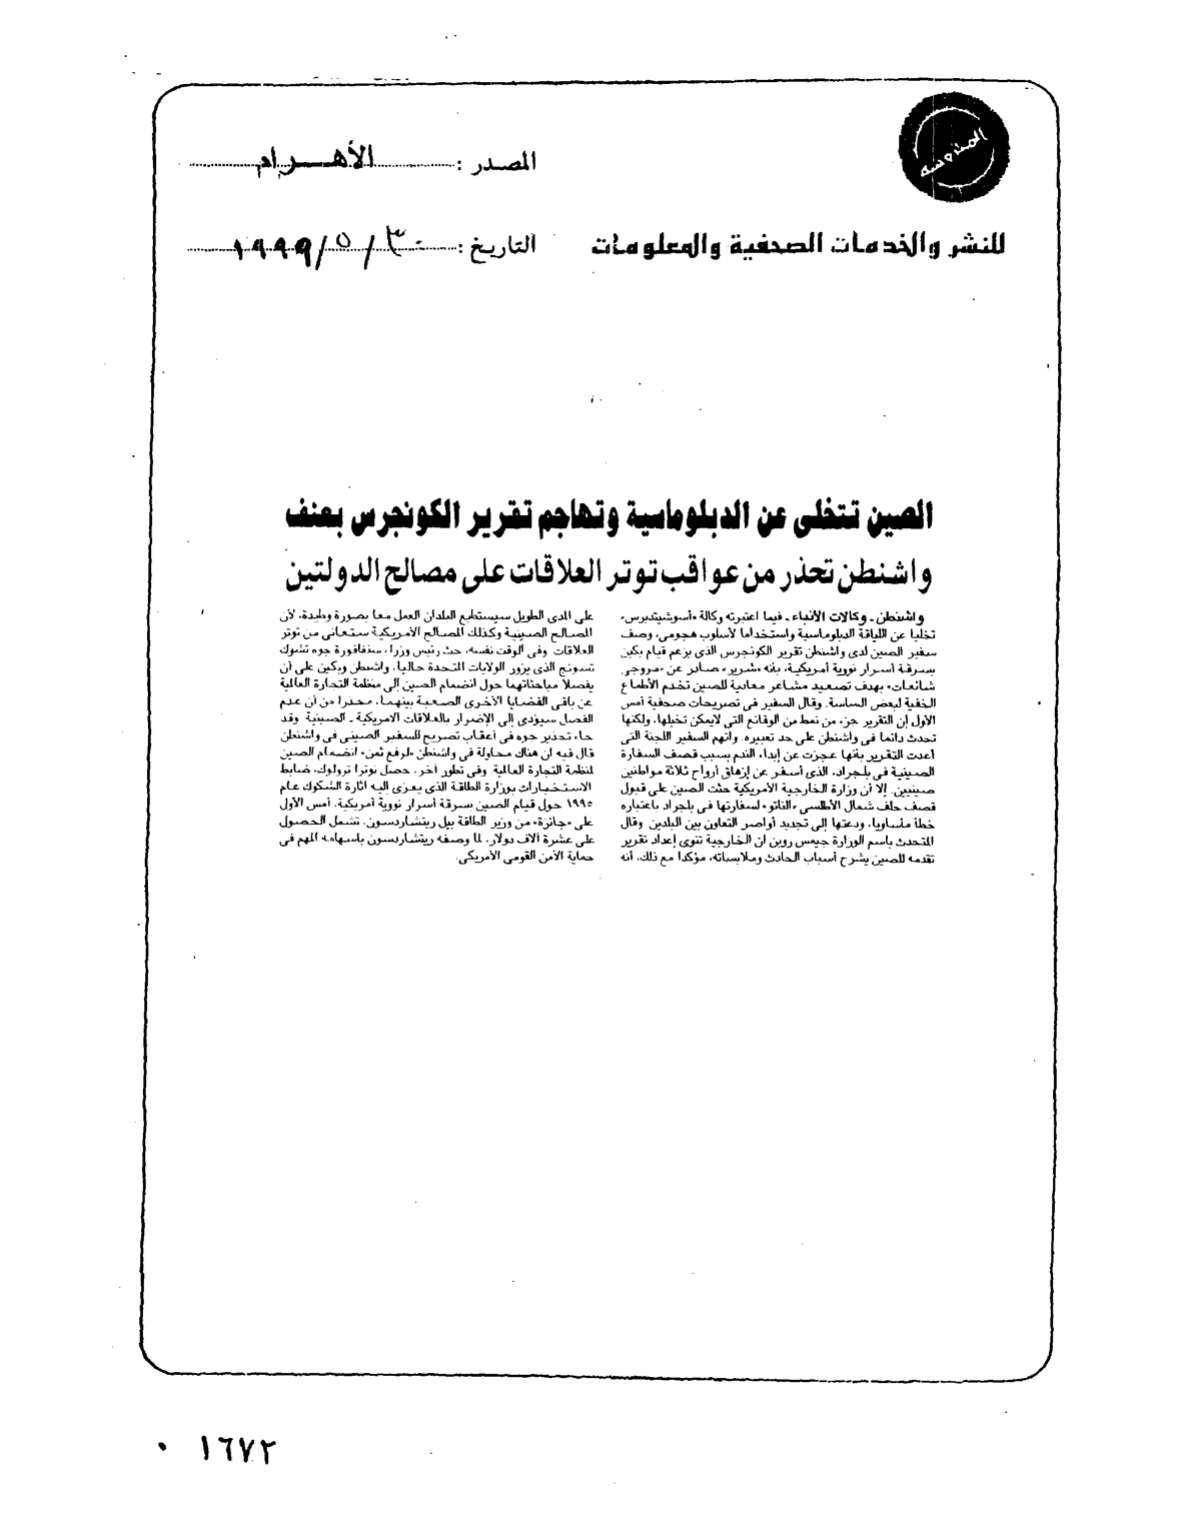 المحروسة
المصدر : الأهرام
للنشر والخدمات الصحفية والمعلومات
التاريخ : ٣٠ / ٥ / ١٩٩٩
الصين تتخلى عن الدبلوماسية وتهاجم تقرير الكونجرس بعنف
واشنطن تحذر من عواقب توتر العلاقات على مصالح الدولتين
واشنطن ـ وكالات الأنباء ـ فيما اعتبرته وكالة «أسوشيتدبرس»
تخليا عن اللياقة الدبلوماسية واستخداما لأسلوب هجومى، وصف
سفير الصين لدى واشنطن تقرير الكونجرس الذى يزعم قيام بكين
بسرقة أسرار نووية أمريكية، بأنه «شرير» صادر عن «مروجى
شائعات» بهدف تصعيد مشاعر معادية للصين تخدم الأطماع
الخفية لبعض الساسة. وقال السفير فى تصريحات صحفية أمس
الأول إن التقرير جزء من نمط من الوقائع التى لايمكن تخيلها، ولكنها
تحدث دائما فى واشنطن على حد تعبيره. واتهم السفير اللجنة التى
أعدت التقرير بأنها عجزت عن إبداء الندم بسبب قصف السفارة
الصينية فى بلجراد، الذى أسفر عن إزهاق أرواح ثلاثة مواطنين
صينيين. إلا أن وزارة الخارجية الأمريكية حثت الصين على قبول
قصف حلف شمال الأطلسى «الناتو» لسفارتها فى بلجراد باعتباره
خطأ مأساويا، ودعتها إلى تجديد أواصر التعاون بين البلدين وقال
المتحدث باسم الوزارة جيمس روبن ان الخارجية تنوى إعداد تقرير
تقدمه للصين يشرح أسباب الحادث وملابساته، مؤكدا مع ذلك، أنه
على المدى الطويل سيستطيع البلدان العمل معا بصورة وطيدة، لأن
المصالح الصينية وكذلك المصالح الأمريكية ستعانى من توتر
العلاقات وفى الوقت نفسه، حث رئيس وزراء سنغافورة جوه تشوك
تسونج الذى يزور الولايات المتحدة حاليا، واشنطن وبكين على أن
يفصلا مباحثاتهما حول انضمام الصين إلى منظمة التجارة العالمية
عن باقى القضايا الأخرى الصعبة بينهما، محذرا من أن عدم
الفصل سيؤدى إلى الإضرار بالعلاقات الامريكية ـ الصينية وقد
جاء تحذير جوه فى أعقاب تصريح للسفير الصينى فى واشنطن
قال فيه ان هناك محاولة فى واشنطن «لرفع ثمن» انضمام الصين
لمنظمة التجارة العالمية. وفى تطور آخر، حصل نوترا ترولوك، ضابط
الاستخبارات بوزارة الطاقة الذى يعزى إليه اثارة الشكوك عام
١٩٩٥ حول قيام الصين بسرقة أسرار نووية أمريكية، أمس الأول
على «جائزة» من وزير الطاقة بيل ريتشاردسون، تشمل الحصول
على عشرة آلاف دولار، لما وصفه ريتشاردسون باسهامه المهم فى
حماية الأمن القومى الأمريكى.
٠ ١٦٧٢